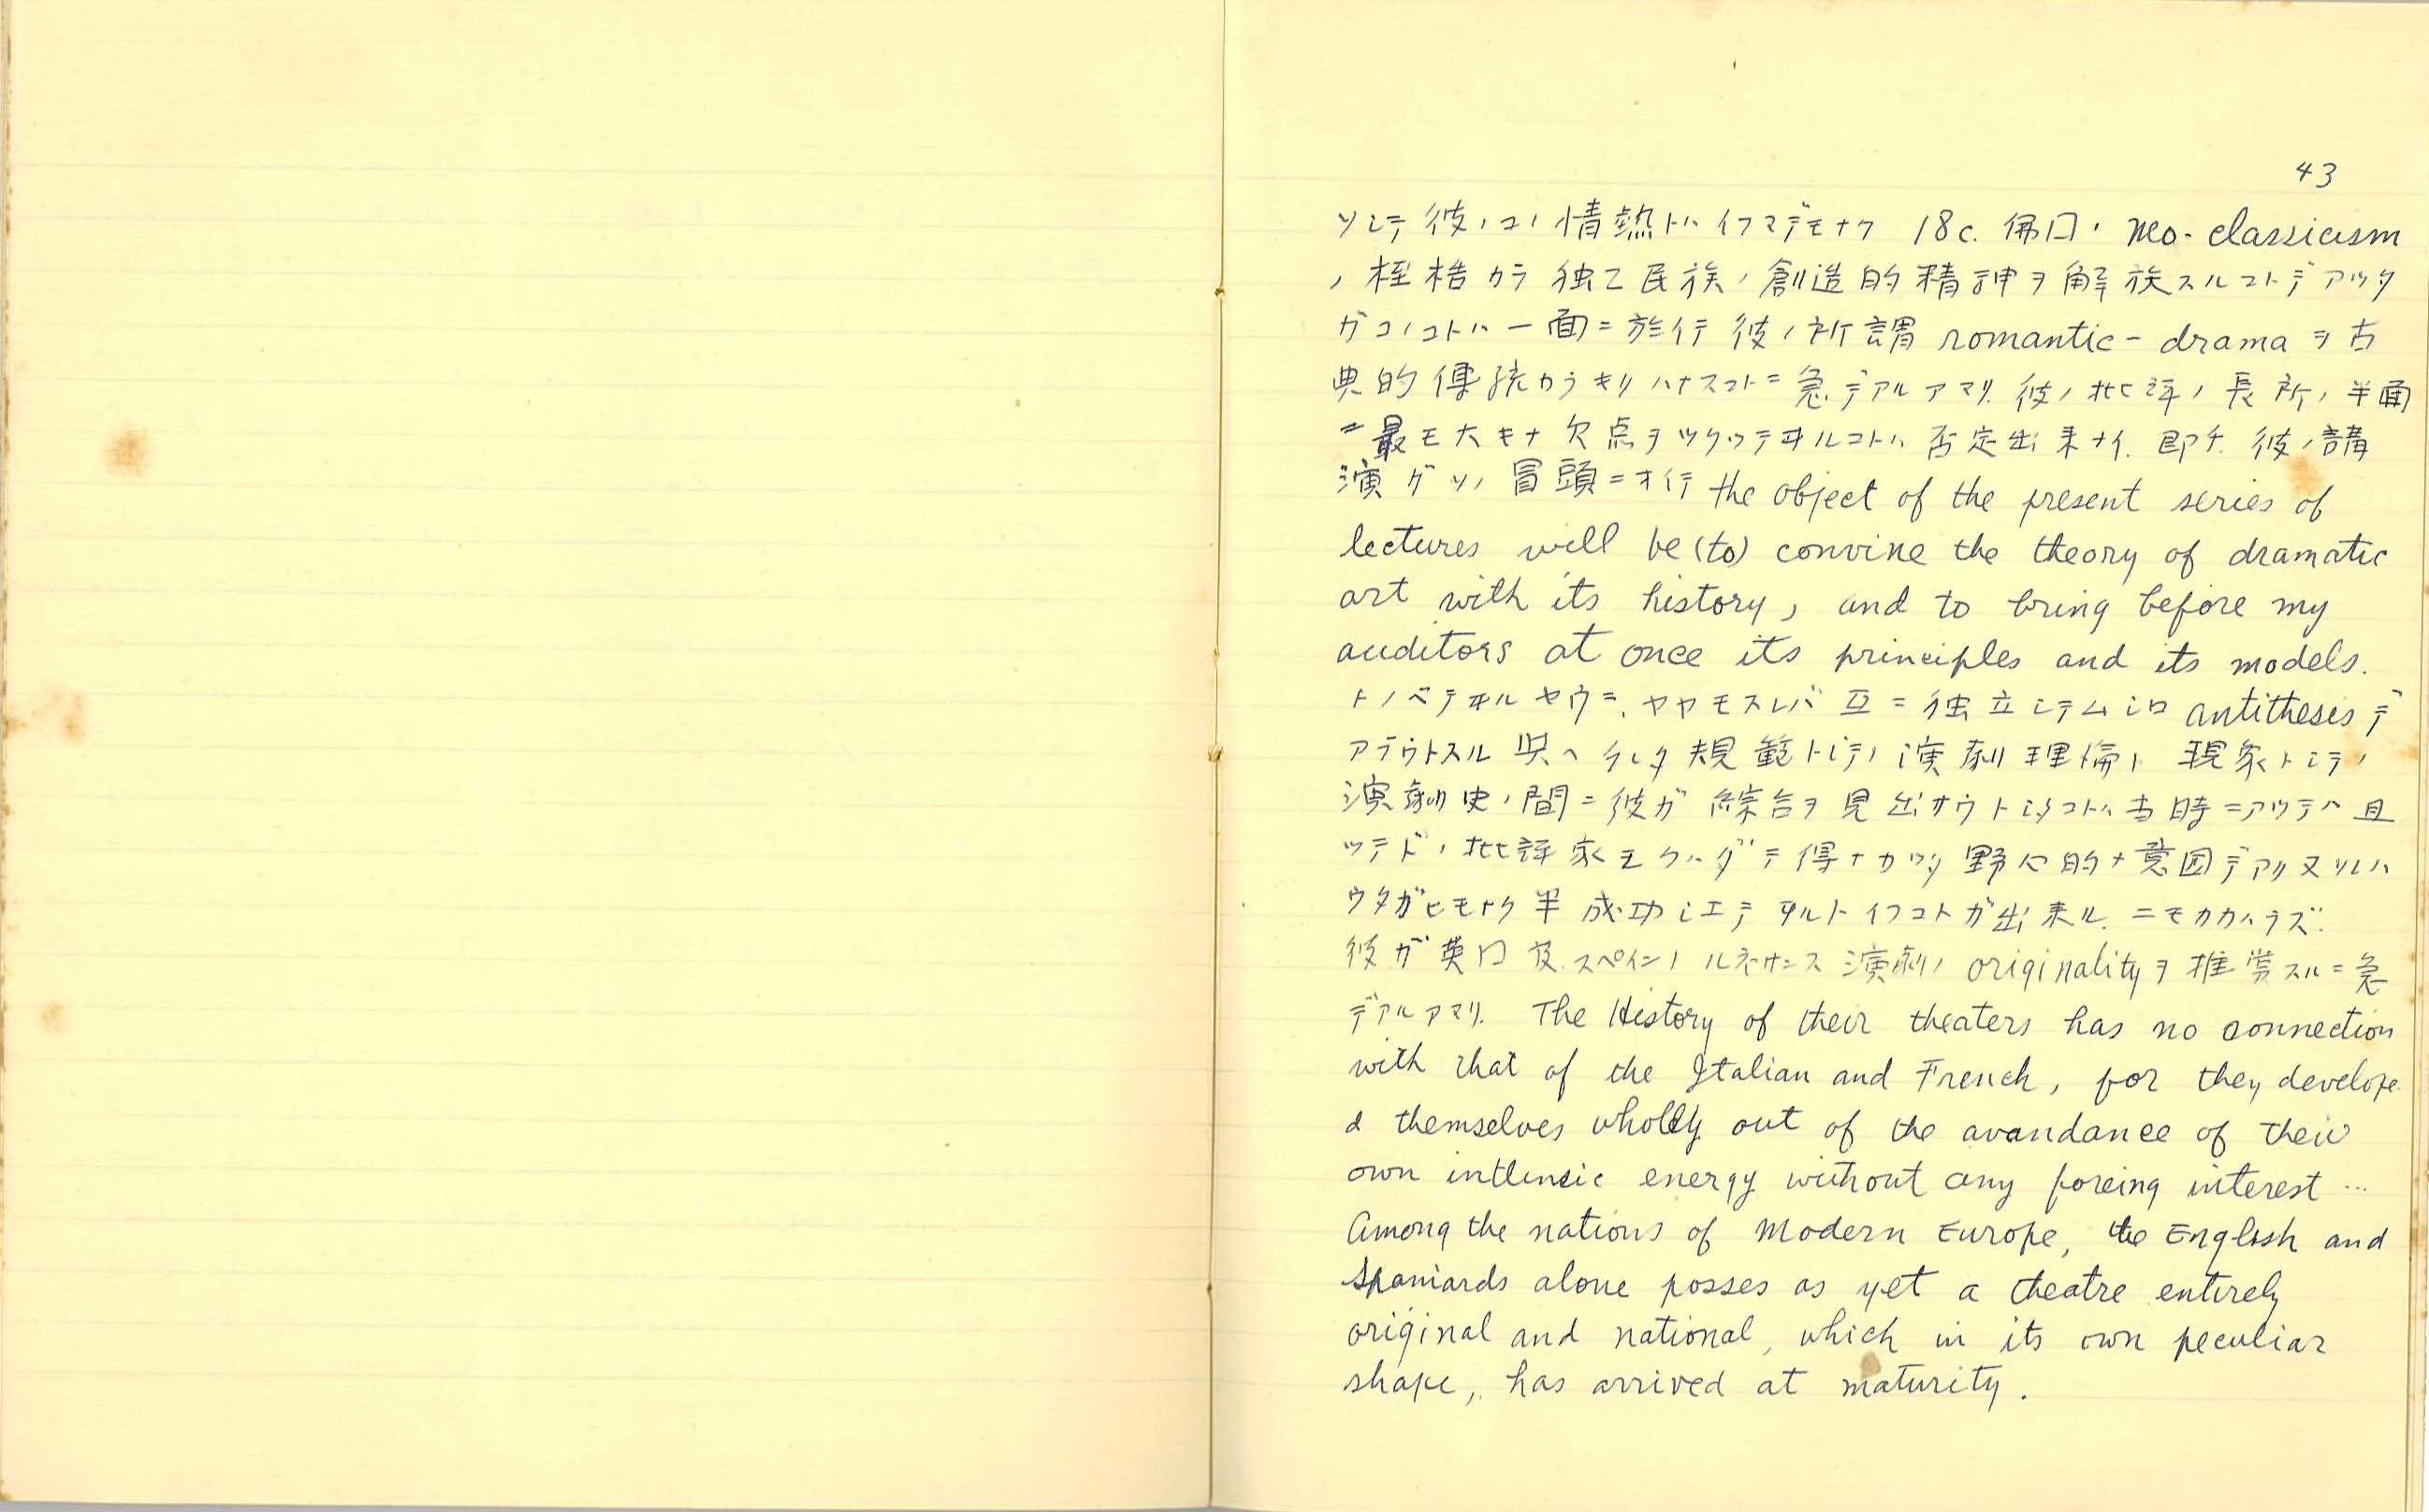 43
ソシテ彼ノコノ情熱トハイフマデモナク 18c. 佛国ノ neo-classicism
ノ桎梏カラ独乙民族ノ創造的精神ヲ解放スルコトデアツタ
ガコノコトハ一面ニ於イテ彼ノ所謂 romantic-drama ヲ古
典的傳統カラキリハナスコトニ急デアルアマリ. 彼ノ批評ノ長所ノ半面
ニ最モ大キナ欠点ヲツクツテヰルコトハ否定出来ナイ. 即チ. 彼ノ講
演 ノ冒頭ニオイテ the object of the present series of
lectures will be (to) convine the theory of dramatic
art with its history, and to bring before my
auditors at once its principles and its models.
トノベテヰルヤウニ. ヤヤモスレバ互ニ独立シテムシロ antithesis デ
アラウトスル 規範トシテノ演劇理倫ト現象トシテノ
演劇史ノ間ニ彼ガ綜合ヲ見出サウトシタコトハ当時ニアツテハ且
ツテドノ批評家モクハダテ得ナカツタ野心的ナ意図デアリ又ソレハ
ウタガヒモナク半成功シエテヰルトイフコトガ出来ル. ニモカカハラズ.
彼ガ英国及スペインノルネサンス演劇ノ originality ヲ推賞スルニ急
デアルアマリ. The History of their theaters has no connection
with that of the Italian and French, for they develope
d themselves wholly out of the avandance of their
own intlinsic energy without any foreing interest ...
Among the nations of Modern Europe, the English and
Spaniards alone posses as yet a theatre entirely
original and national, which in its own peculiar
shape, has arrived at maturity.